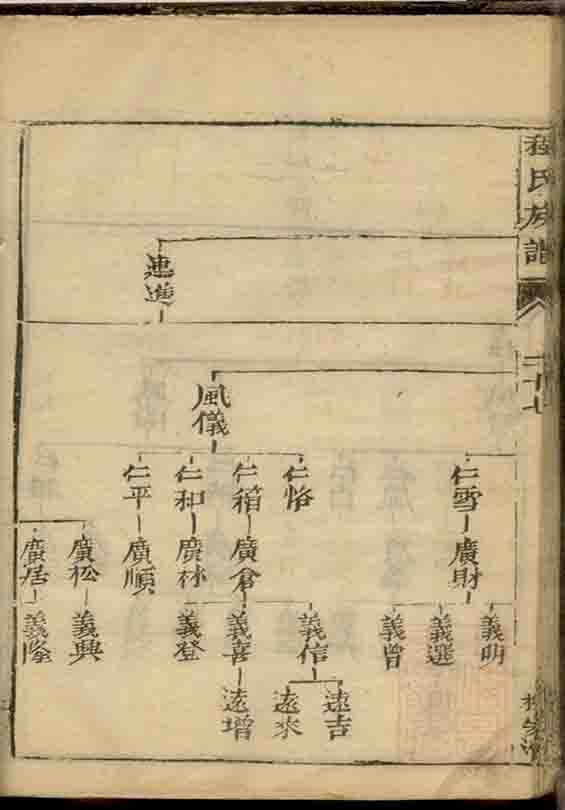 程氏族譜
二十七
連進
風儀
仁雪
廣財
義明
義選
義曾
仁恪
仁箱
廣倉
義信
遠吉
遠來
義喜
遠增
仁和
廣林
義登
仁平
廣順
廣松
義興
廣居
義隆